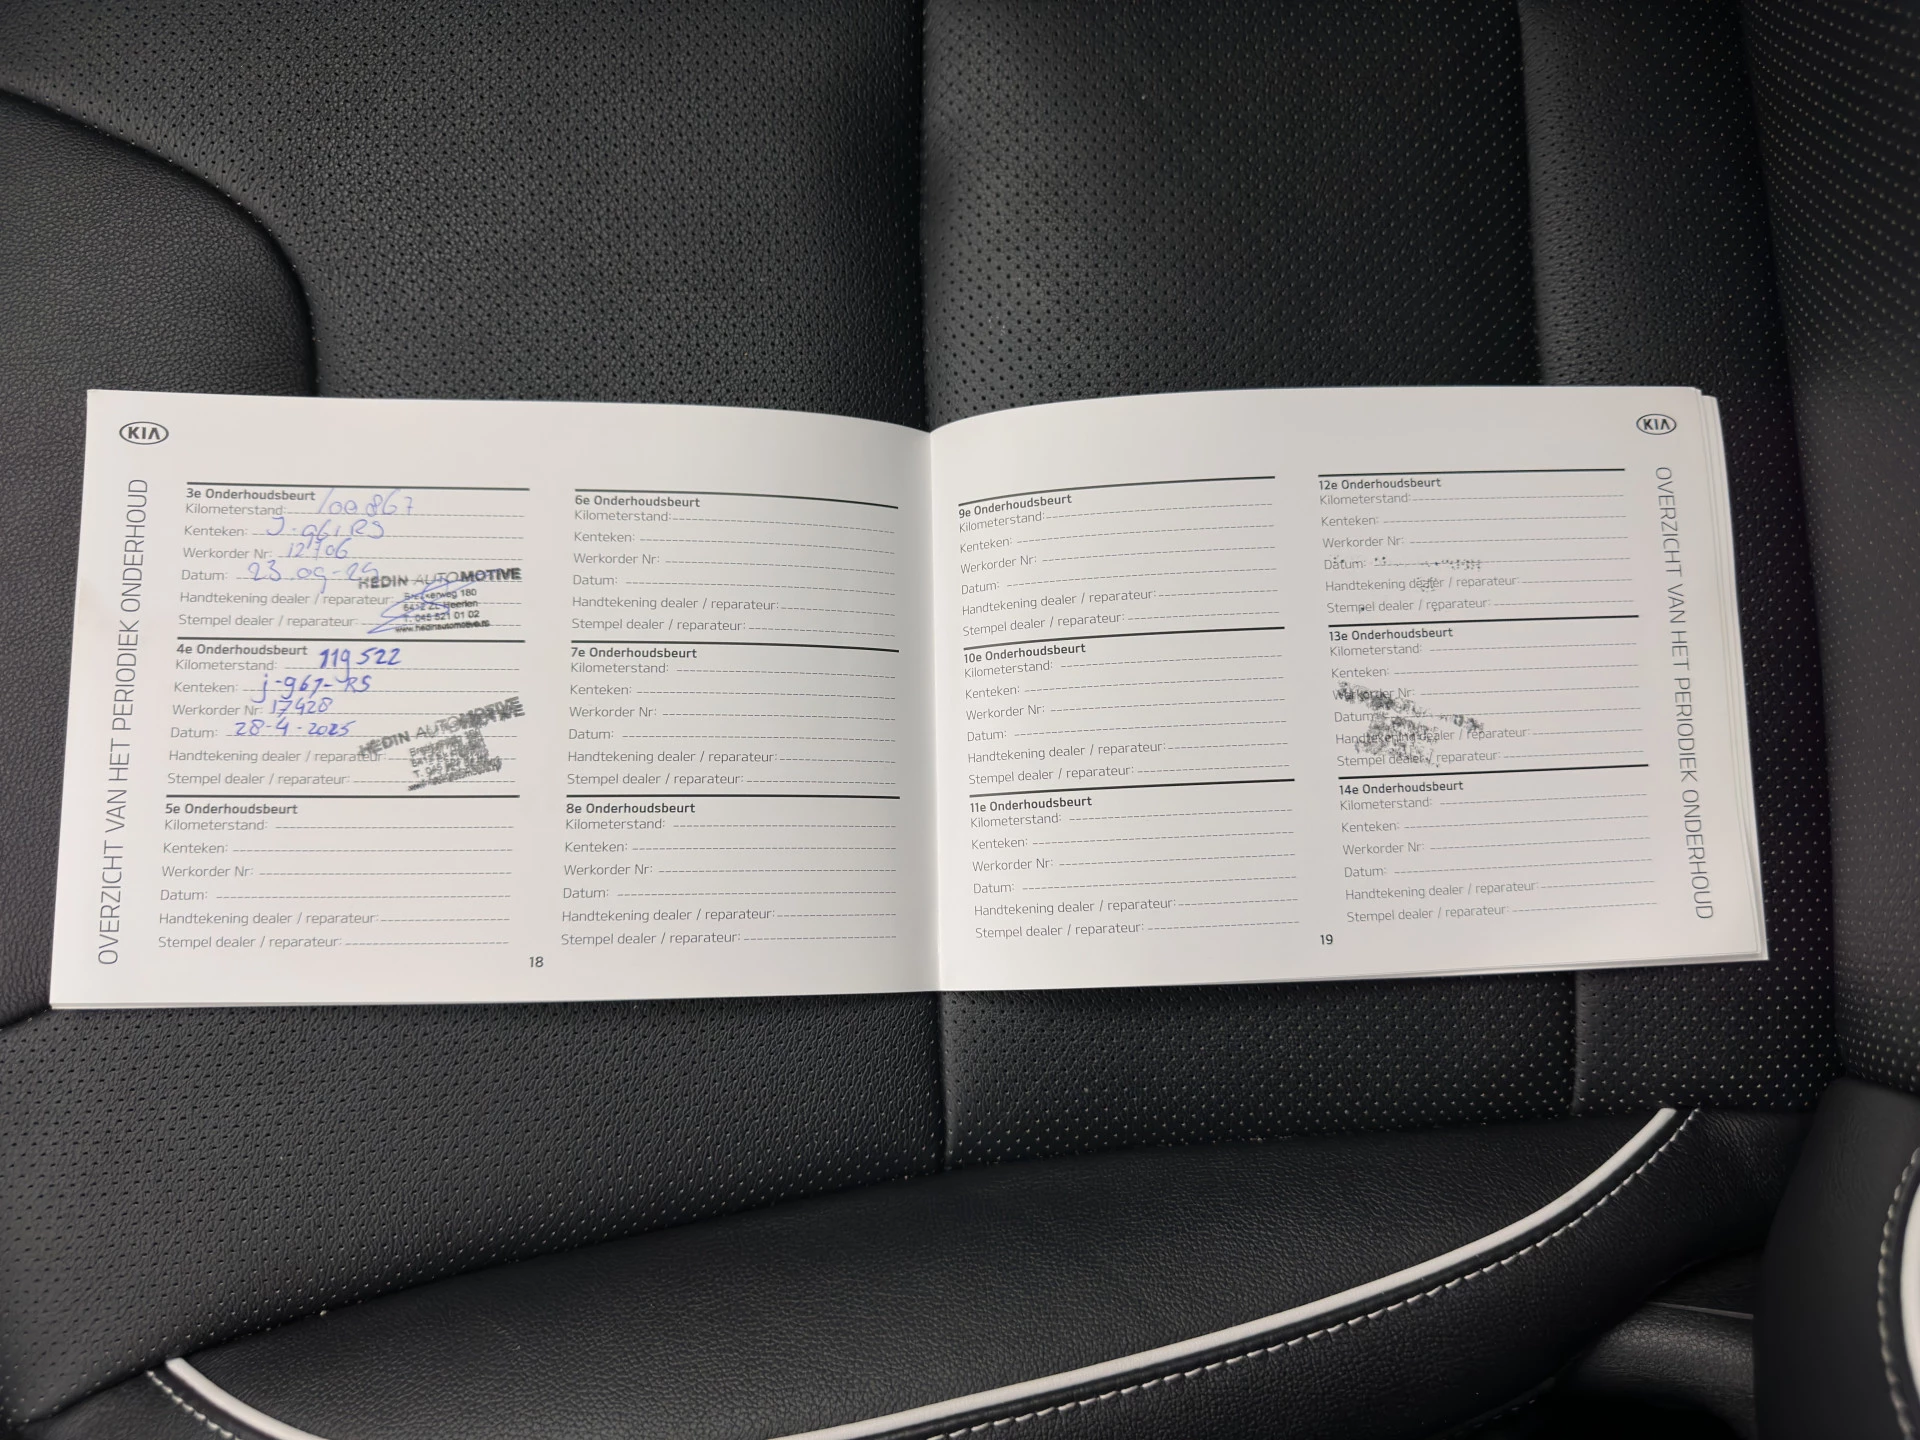 KIA
OVERZICHT VAN HET PERIODIEK ONDERHOUD
3e Onderhoudsbeurt
Kilometerstand: 100867
Kenteken: J-961-RS
Werkorder Nr: 12706
Datum: 23-09-24
Handtekening dealer / reparateur:
Stempel dealer / reparateur:
HEDIN AUTOMOTIVE
180
Heerlen
T. 045 521 01 02
www.hedinautomotive.nl
4e Onderhoudsbeurt
Kilometerstand: 119522
Kenteken: j-961-RS
Werkorder Nr: 17428
Datum: 28-4-2025
Handtekening dealer / reparateur:
Stempel dealer / reparateur:
HEDIN AUTOMOTIVE
5e Onderhoudsbeurt
Kilometerstand:
Kenteken:
Werkorder Nr:
Datum:
Handtekening dealer / reparateur:
Stempel dealer / reparateur:
6e Onderhoudsbeurt
Kilometerstand:
Kenteken:
Werkorder Nr:
Datum:
Handtekening dealer / reparateur:
Stempel dealer / reparateur:
7e Onderhoudsbeurt
Kilometerstand:
Kenteken:
Werkorder Nr:
Datum:
Handtekening dealer / reparateur:
Stempel dealer / reparateur:
8e Onderhoudsbeurt
Kilometerstand:
Kenteken:
Werkorder Nr:
Datum:
Handtekening dealer / reparateur:
Stempel dealer / reparateur:
18
9e Onderhoudsbeurt
Kilometerstand:
Kenteken:
Werkorder Nr:
Datum:
Handtekening dealer / reparateur:
Stempel dealer / reparateur:
10e Onderhoudsbeurt
Kilometerstand:
Kenteken:
Werkorder Nr:
Datum:
Handtekening dealer / reparateur:
Stempel dealer / reparateur:
11e Onderhoudsbeurt
Kilometerstand:
Kenteken:
Werkorder Nr:
Datum:
Handtekening dealer / reparateur:
Stempel dealer / reparateur:
12e Onderhoudsbeurt
Kilometerstand:
Kenteken:
Werkorder Nr:
Datum:
Handtekening dealer / reparateur:
Stempel dealer / reparateur:
13e Onderhoudsbeurt
Kilometerstand:
Kenteken:
Werkorder Nr:
Datum:
Handtekening dealer / reparateur:
Stempel dealer / reparateur:
14e Onderhoudsbeurt
Kilometerstand:
Kenteken:
Werkorder Nr:
Datum:
Handtekening dealer / reparateur:
Stempel dealer / reparateur:
19
KIA
OVERZICHT VAN HET PERIODIEK ONDERHOUD